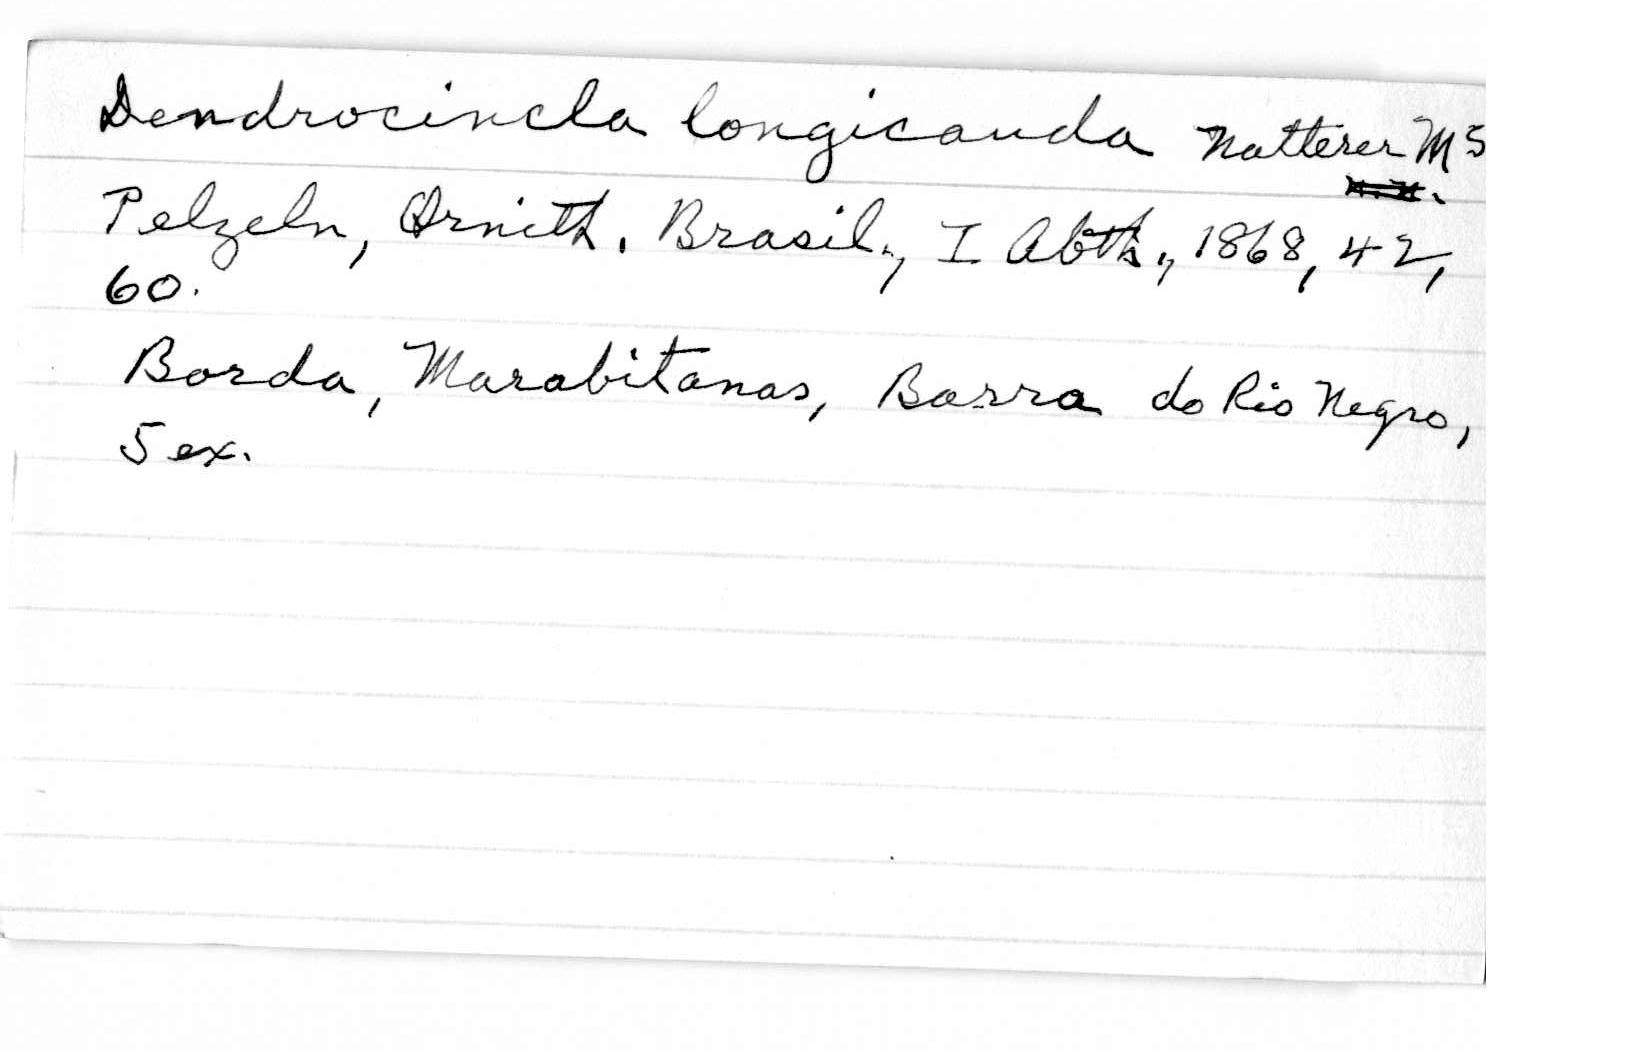 Dendrocincla longicauda Natterer MS
Pelzeln, Ornith. Brasil., I Abth., 1868, 42,
60.
Borda, Marabitanas, Barra do Rio Negro,
5 ex.